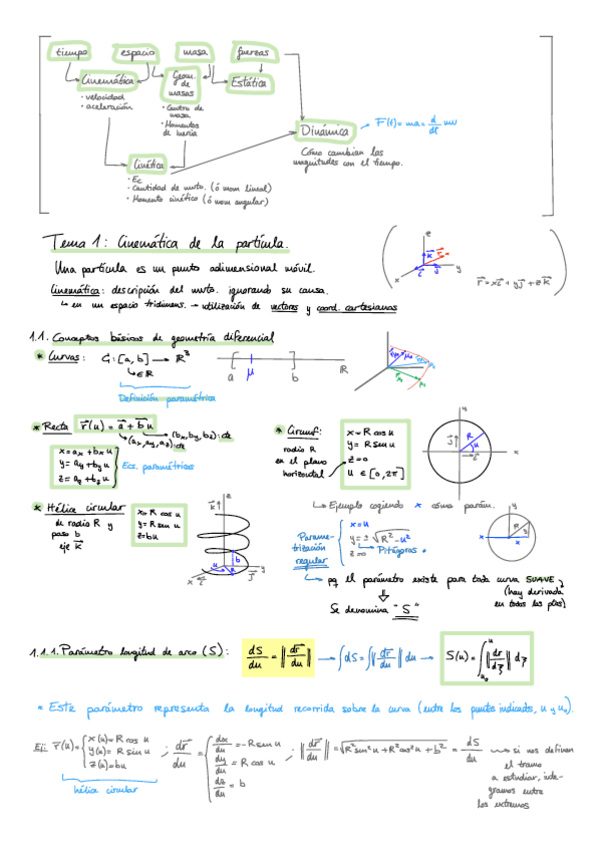 tiempo espacio masa fuerzas
Cinemática Geom. de masas Estática
· velocidad
· aceleración
· Centro de masa
· Momentos de inercia
Dinámica → F(t) = ma = d/dt mv
Cómo cambian las
magnitudes con el tiempo.
Cinética
· Ec
· Cantidad de mvto. (ó mom lineal)
· Momento cinético (ó mom angular)
Tema 1: Cinemática de la partícula.
Una partícula es un punto adimensional móvil.
Cinemática: descripción del mvto. ignorando su causa.
↳ en un espacio tridimens. → utilización de vectores y coord. cartesianas
z
x
y
r = xi + yj + zk
1.1. Conceptos básicos de geometría diferencial
* Curvas: G: [a, b] → R³
↳ ∈ R
Definición paramétrica
a μ b R
* Recta r(u) = a + b u
(bx, by, bz): cte
(ax, ay, az): cte
x = ax + bx u
y = ay + by u
z = az + bz u
Ecs. paramétricas
* Circunf:
radio R
en el plano
horizontal
x = R cos u
y = R sin u
z = 0
u ∈ [0, 2π]
↳ Ejemplo cogiendo x cómo parám.
* Hélice circular
de radio R y
paso b
eje k
x = R cos u
y = R sin u
z = bu
Parame-
trización
regular
x = u
y = ± √R² - u²
z = 0
↳ Pitágoras
↳ pq el parámetro existe para toda curva SUAVE
(hay derivada
en todos los ptos)
Se denomina "S"
1.1.1. Parámetro longitud de arco (S): dS/du = ‖dr/du‖ → ∫dS = ∫‖dr/du‖ du → S(u) = ∫ᵤ₀ᵘ ‖dr/dξ‖ dξ
* Este parámetro representa la longitud recorrida sobre la curva (entre los puntos indicados, u y u₀).
Ej: r(u) = { x(u) = R cos u
y(u) = R sin u
z(u) = bu
hélice circular
; dr/du = { dx/du = -R sen u
dy/du = R cos u
dz/du = b
; ‖dr/du‖ = √R² sin² u + R² cos² u + b² = dS/du
→ si nos definen
el tramo
a estudiar, inte-
gramos entre
los extremos